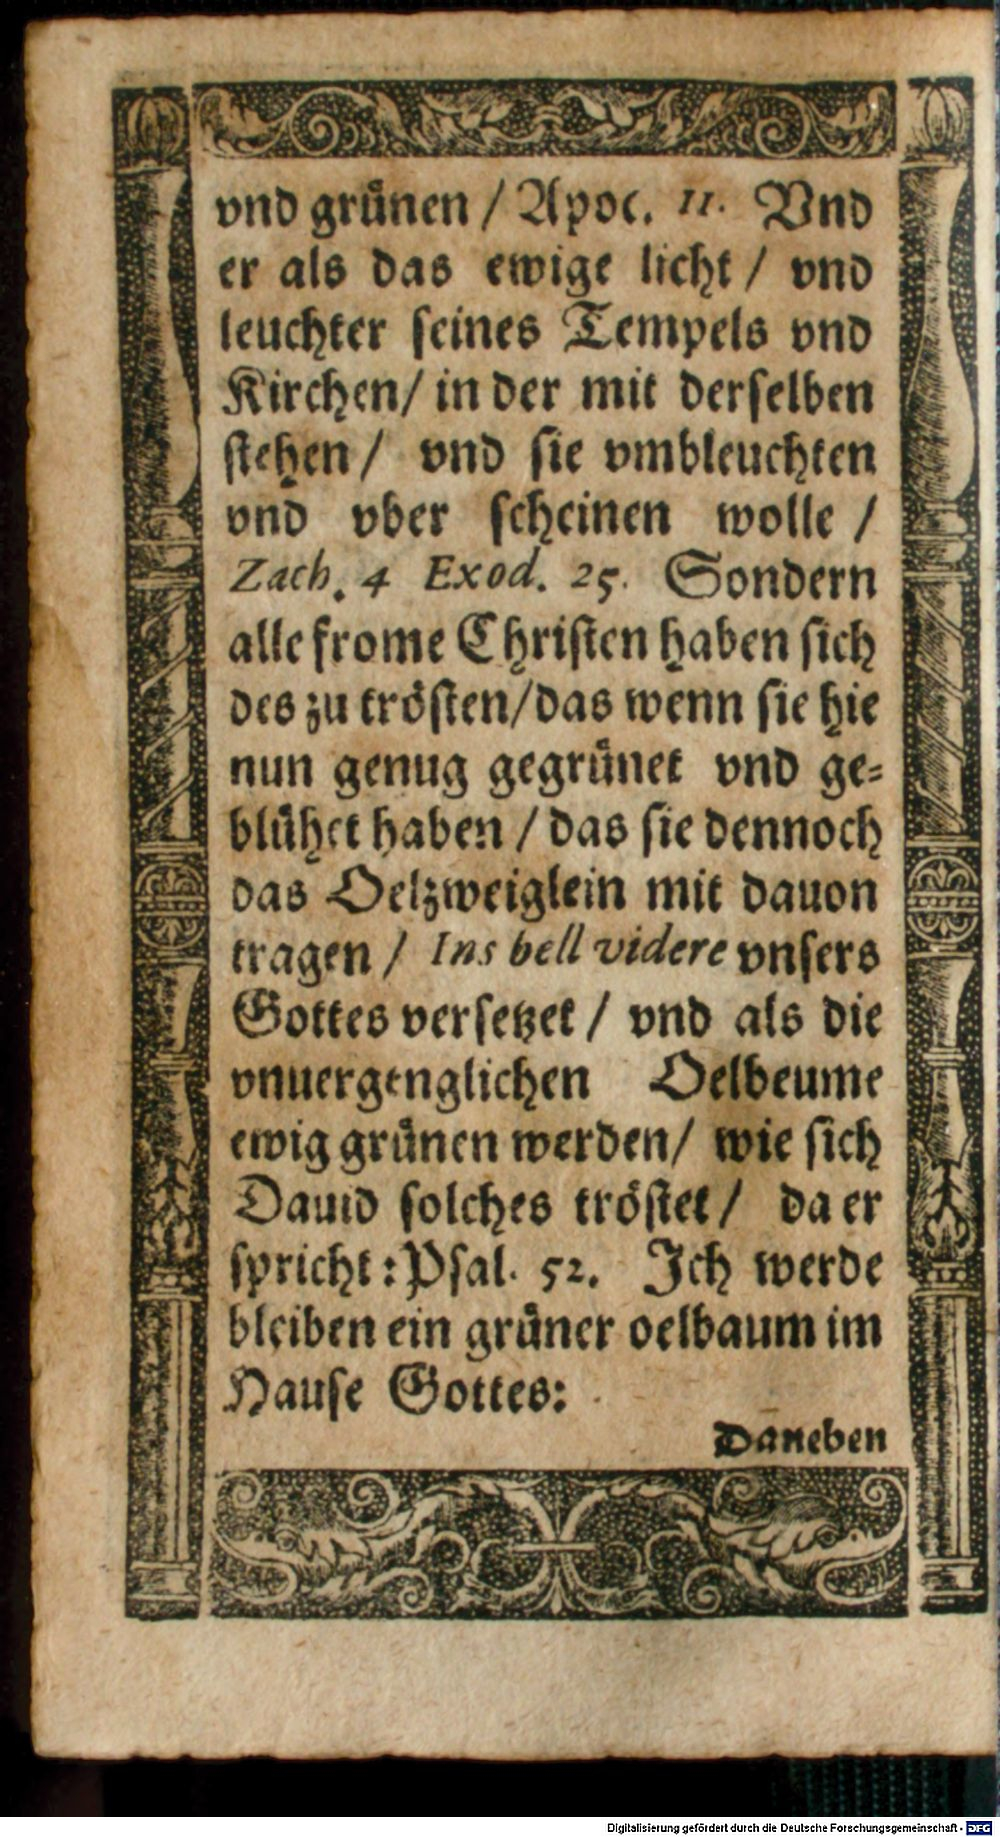 vnd gruͤnen / Apoc. 11. Vnd
er als das ewige licht / vnd
leuchter seines Tempels vnd
Kirchen / in der mit derselben
stehen / vnd sie vmbleuchten
vnd vber scheinen wolle /
Zach. 4 Exod. 25. Sondern
alle frome Christen haben sich
des zu troͤsten / das wenn sie hie
nun genug gegruͤnet vnd ge=
bluͤhet haben / das sie dennoch
das Oelzweiglein mit dauon
tragen / Ins bell videre vnsers
Gottes versetzet / vnd als die
vnuergenglichen Oelbeume
ewig gruͤnen werden / wie sich
Dauid solches troͤstet / da er
spricht: Psal. 52. Ich werde
bleiben ein gruͤner oelbaum im
Hause Gottes:
Daneben
Digitalisierung gefördert durch die Deutsche Forschungsgemeinschaft - DFG